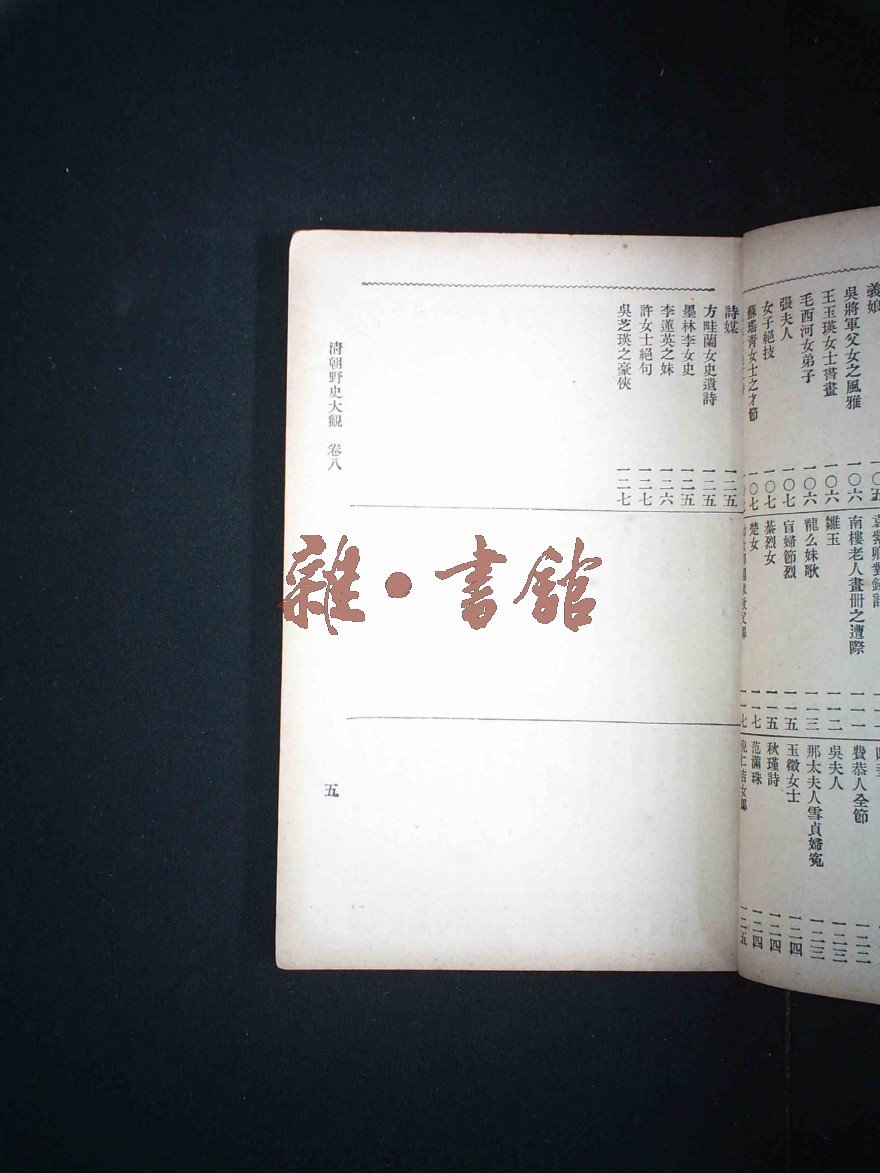 義娘
一〇五
吳將軍父女之風雅
一〇六
王玉瑛女士書畫
一〇六
毛西河女弟子
一〇六
張夫人
一〇七
女子絕技
一〇七
蘇瑤青女士之才節
一〇七
南樓老人畫冊之遭際
一一一
雛玉
一一二
龍么妹歌
一一三
盲婦節烈
一一五
綦烈女
一一五
楚女
一一七
一一七
費恭人全節
一二二
吳夫人
一二三
那太夫人雪貞婦冤
一二三
玉徵女士
一二四
秋瑾詩
一二四
范滿珠
一二四
倪仁吉女郎
一二五
詩媒
一二五
方畦蘭女史遺詩
一二五
墨林李女史
一二五
李道英之妹
一二六
許女士絕句
一二七
吳芝瑛之豪俠
一二七
清朝野史大觀 卷八
五
雜·書館